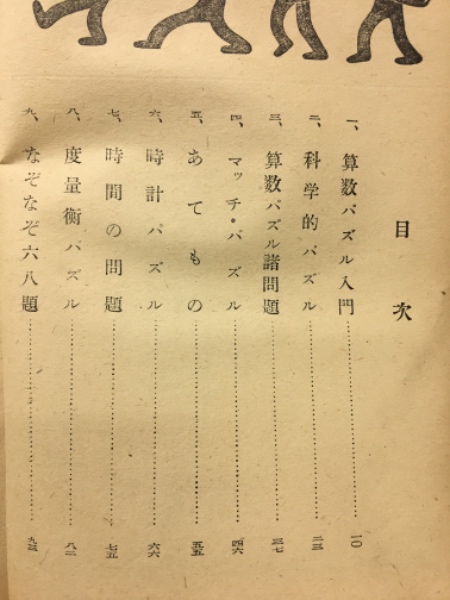 目次
一、算数パズル入門……一〇
二、科学的パズル……二三
三、算数パズル諸問題……三七
四、マッチ・パズル……四六
五、あてもの……五五
六、時計パズル……六六
七、時間の問題……七五
八、度量衡パズル……八二
九、なぞなぞ六八題……九三